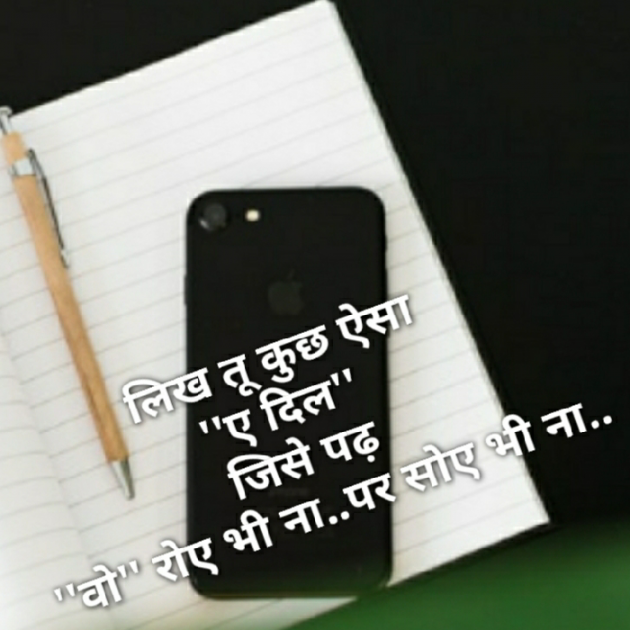 लिख तू कुछ ऐसा
"ए दिल"
जिसे पढ़
"वो" रोए भी ना..पर सोए भी ना..